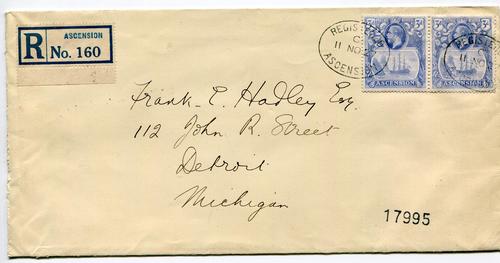 R
ASCENSION
No. 160
REGISTERED
C
11 NO
ASCENSION
ASCENSION
ASCENSION
REGISTE
11 NO
Frank E. Hadley Esq.
112 John R. Street
Detroit
Michigan
17995